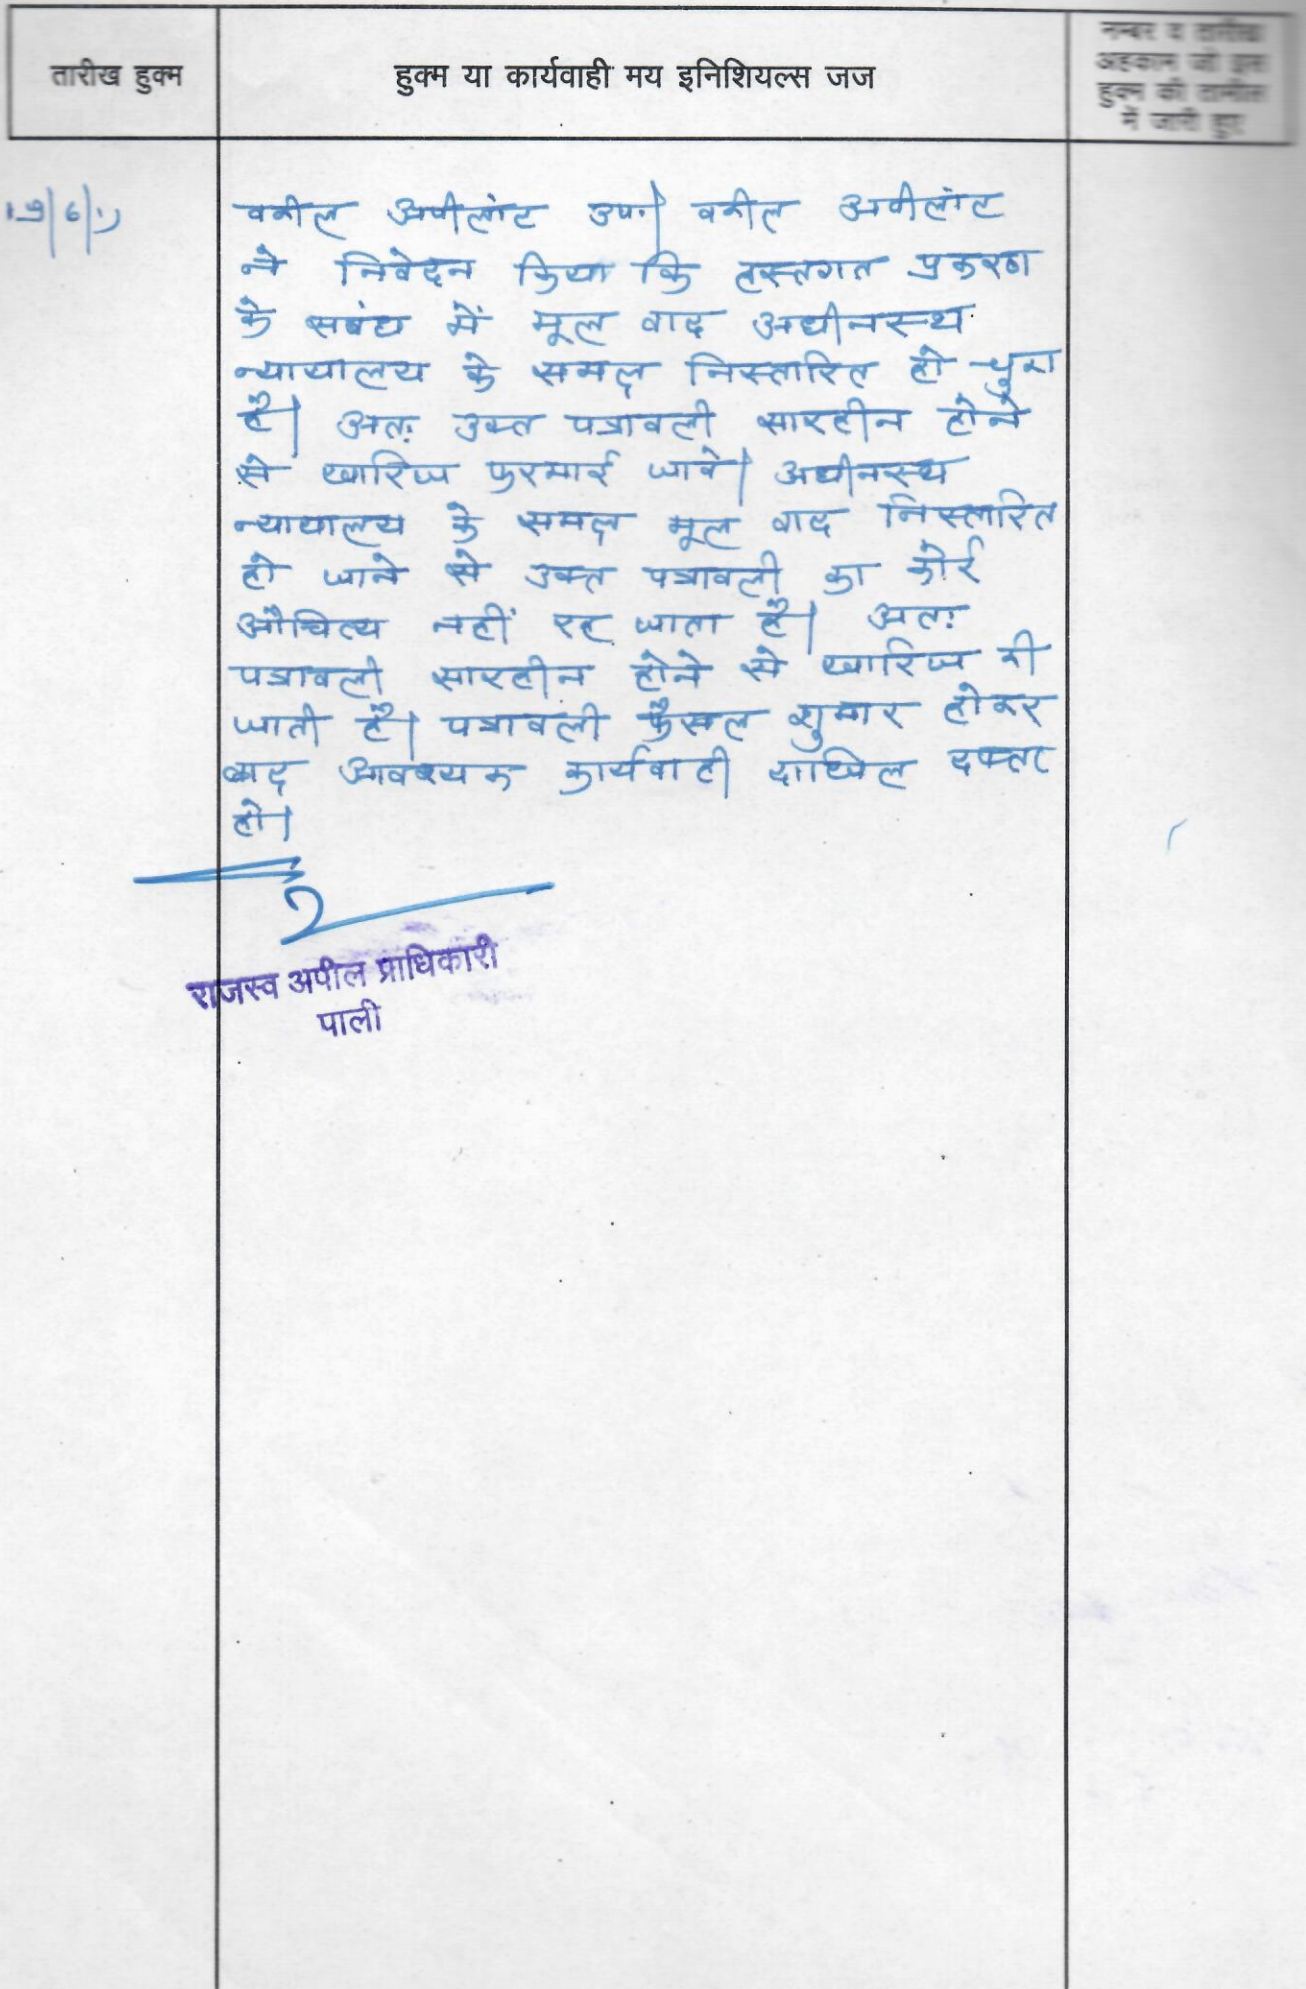 तारीख हुक्म
हुक्म या कार्यवाही मय इनिशियल्स जज
नम्बर व तारीख
अहकाम जो इस
हुक्म की तामील
में जारी हुए
वकील अपीलांट उप.। वकील अपीलांट
ने निवेदन किया कि हस्तगत प्रकरण
के सबंध में मूल वाद अधीनस्थ
न्यायालय के समक्ष निस्तारित हो चुका
है। अतः उक्त पत्रावली सारहीन होने
से खारिज फरमाई जावे। अधीनस्थ
न्यायालय के समक्ष मूल वाद निस्तारित
हो जाने से उक्त पत्रावली का कोई
औचित्य नहीं रह जाता है। अतः
पत्रावली सारहीन होने से खारिज की
जाती है। पत्रावली फैसल शुमार होकर
बाद आवश्यक कार्यवाही दाखिल दफ्तर
हो।
राजस्व अपील प्राधिकारी
पाली